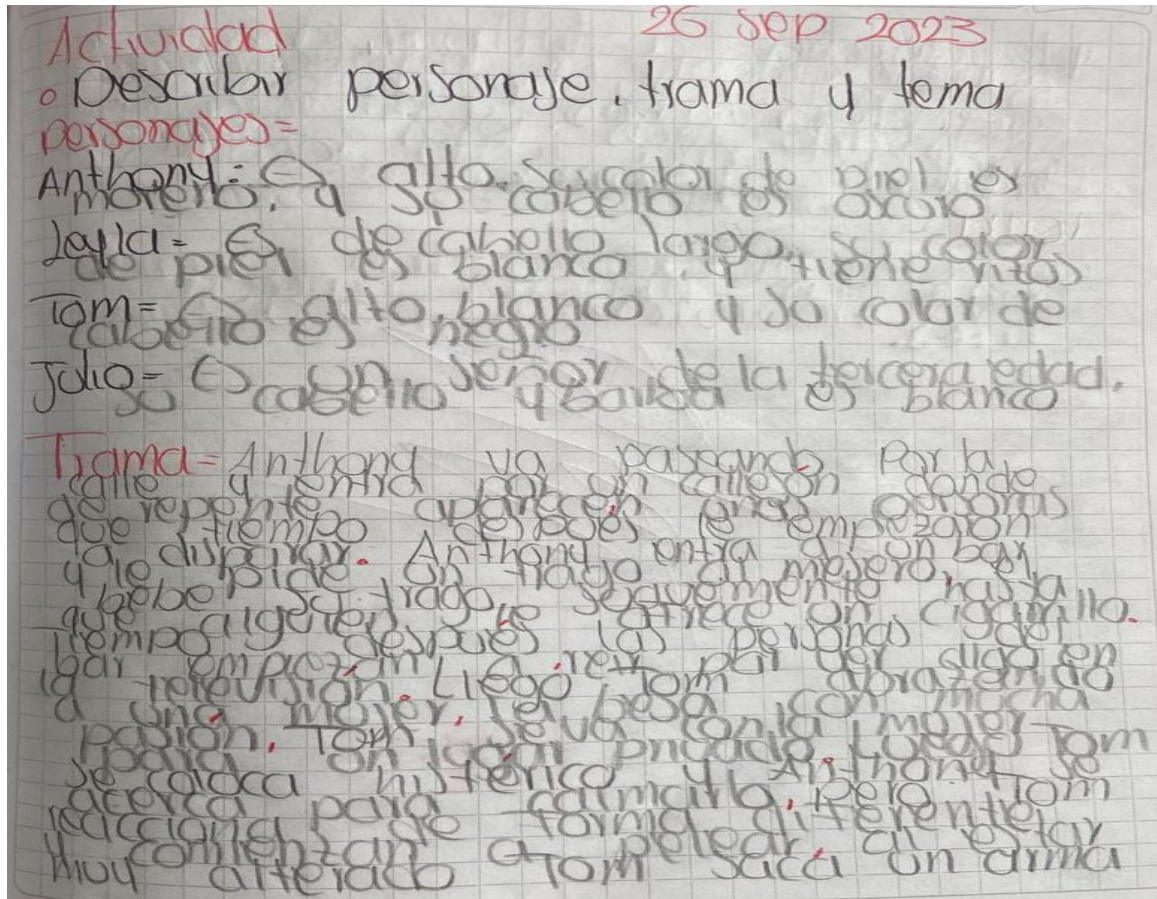 Actividad 26 sep 2023
◦ Describir personaje, trama y tema
personajes=
Anthony: Es alto. Su color de piel es
moreno, y su cabello es oscuro
Layla= Es de cabello largo, su color
de piel es blanco y tiene
Tom= Es alto, blanco y su color de
cabello es negro
Julio= Es un señor de la tercera edad.
su cabello y barba es blanco
Trama= Anthony va paseando Por la
calle y entra por un callejon donde
de repente aparecen unas personas
que tiempo despues le empezaron
a disparar. Anthony entra a un bar
y le pide un trago al mesero,
bebe su trago hasta
que alguien le ofrece un cigarrillo.
Tiempo después las personas del
bar empiezan a reir por ver algo en
la televisión. Llego Tom abrazando
a una mujer, la besa con mucha
pasion. Tom se va con la mujer
para un lugar privado. Luego Tom
se coloca histérico y Anthony se
acerca para calmarlo, pero Tom
reacciona de forma diferente,
comienzan a pelear al estar
muy alterado Tom saca un arma